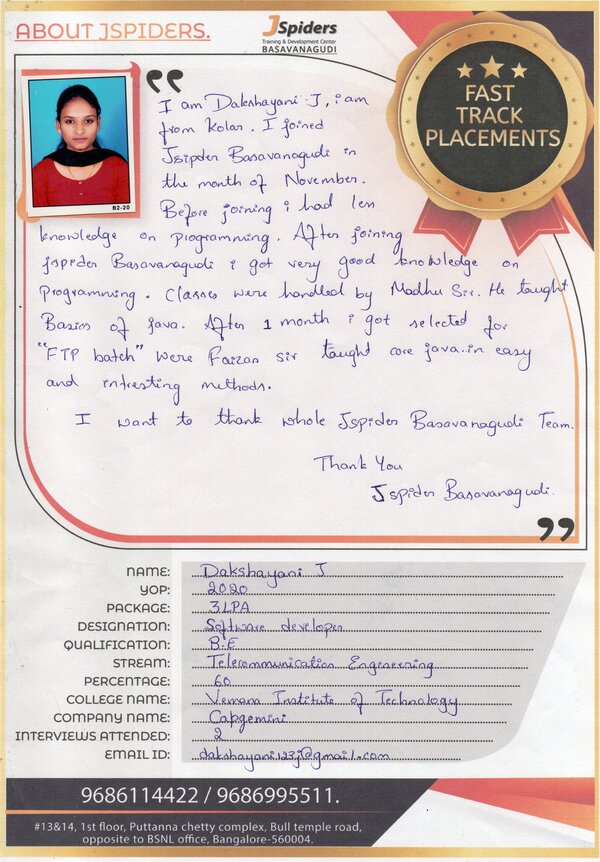 ABOUT JSPIDERS.
JSpiders
Training & Development Center
BASAVANAGUDI
FAST
TRACK
PLACEMENTS
B2-20
I am Dakshayani J, i am
from Kolar. I joined
Jsipder Basavanagudi in
the month of November.
Before joining i had less
knowledge on programming. After joining
jspider Basavanagudi i got very good knowledge on
programming. Classes were handled by Madhu Sir. He taught
Basics of java. After 1 month i got selected for
"FTP batch" were Faizan sir taught core java..in easy
and intresting methods.
I want to thank whole Jspider Basavanagudi Team.
Thank You
Jspider Basavanagudi.
NAME: Dakshayani J
YOP: 2020
PACKAGE: 3LPA
DESIGNATION: Software developer
QUALIFICATION: B.E
STREAM: Telecommunication Engineering
PERCENTAGE: 60
COLLEGE NAME: Vemana Institute of Technology
COMPANY NAME: Capgemini
INTERVIEWS ATTENDED: 2
EMAIL ID: dakshayani123j@gmail.com
9686114422 / 9686995511.
#13&14, 1st floor, Puttanna chetty complex, Bull temple road,
opposite to BSNL office, Bangalore-560004.